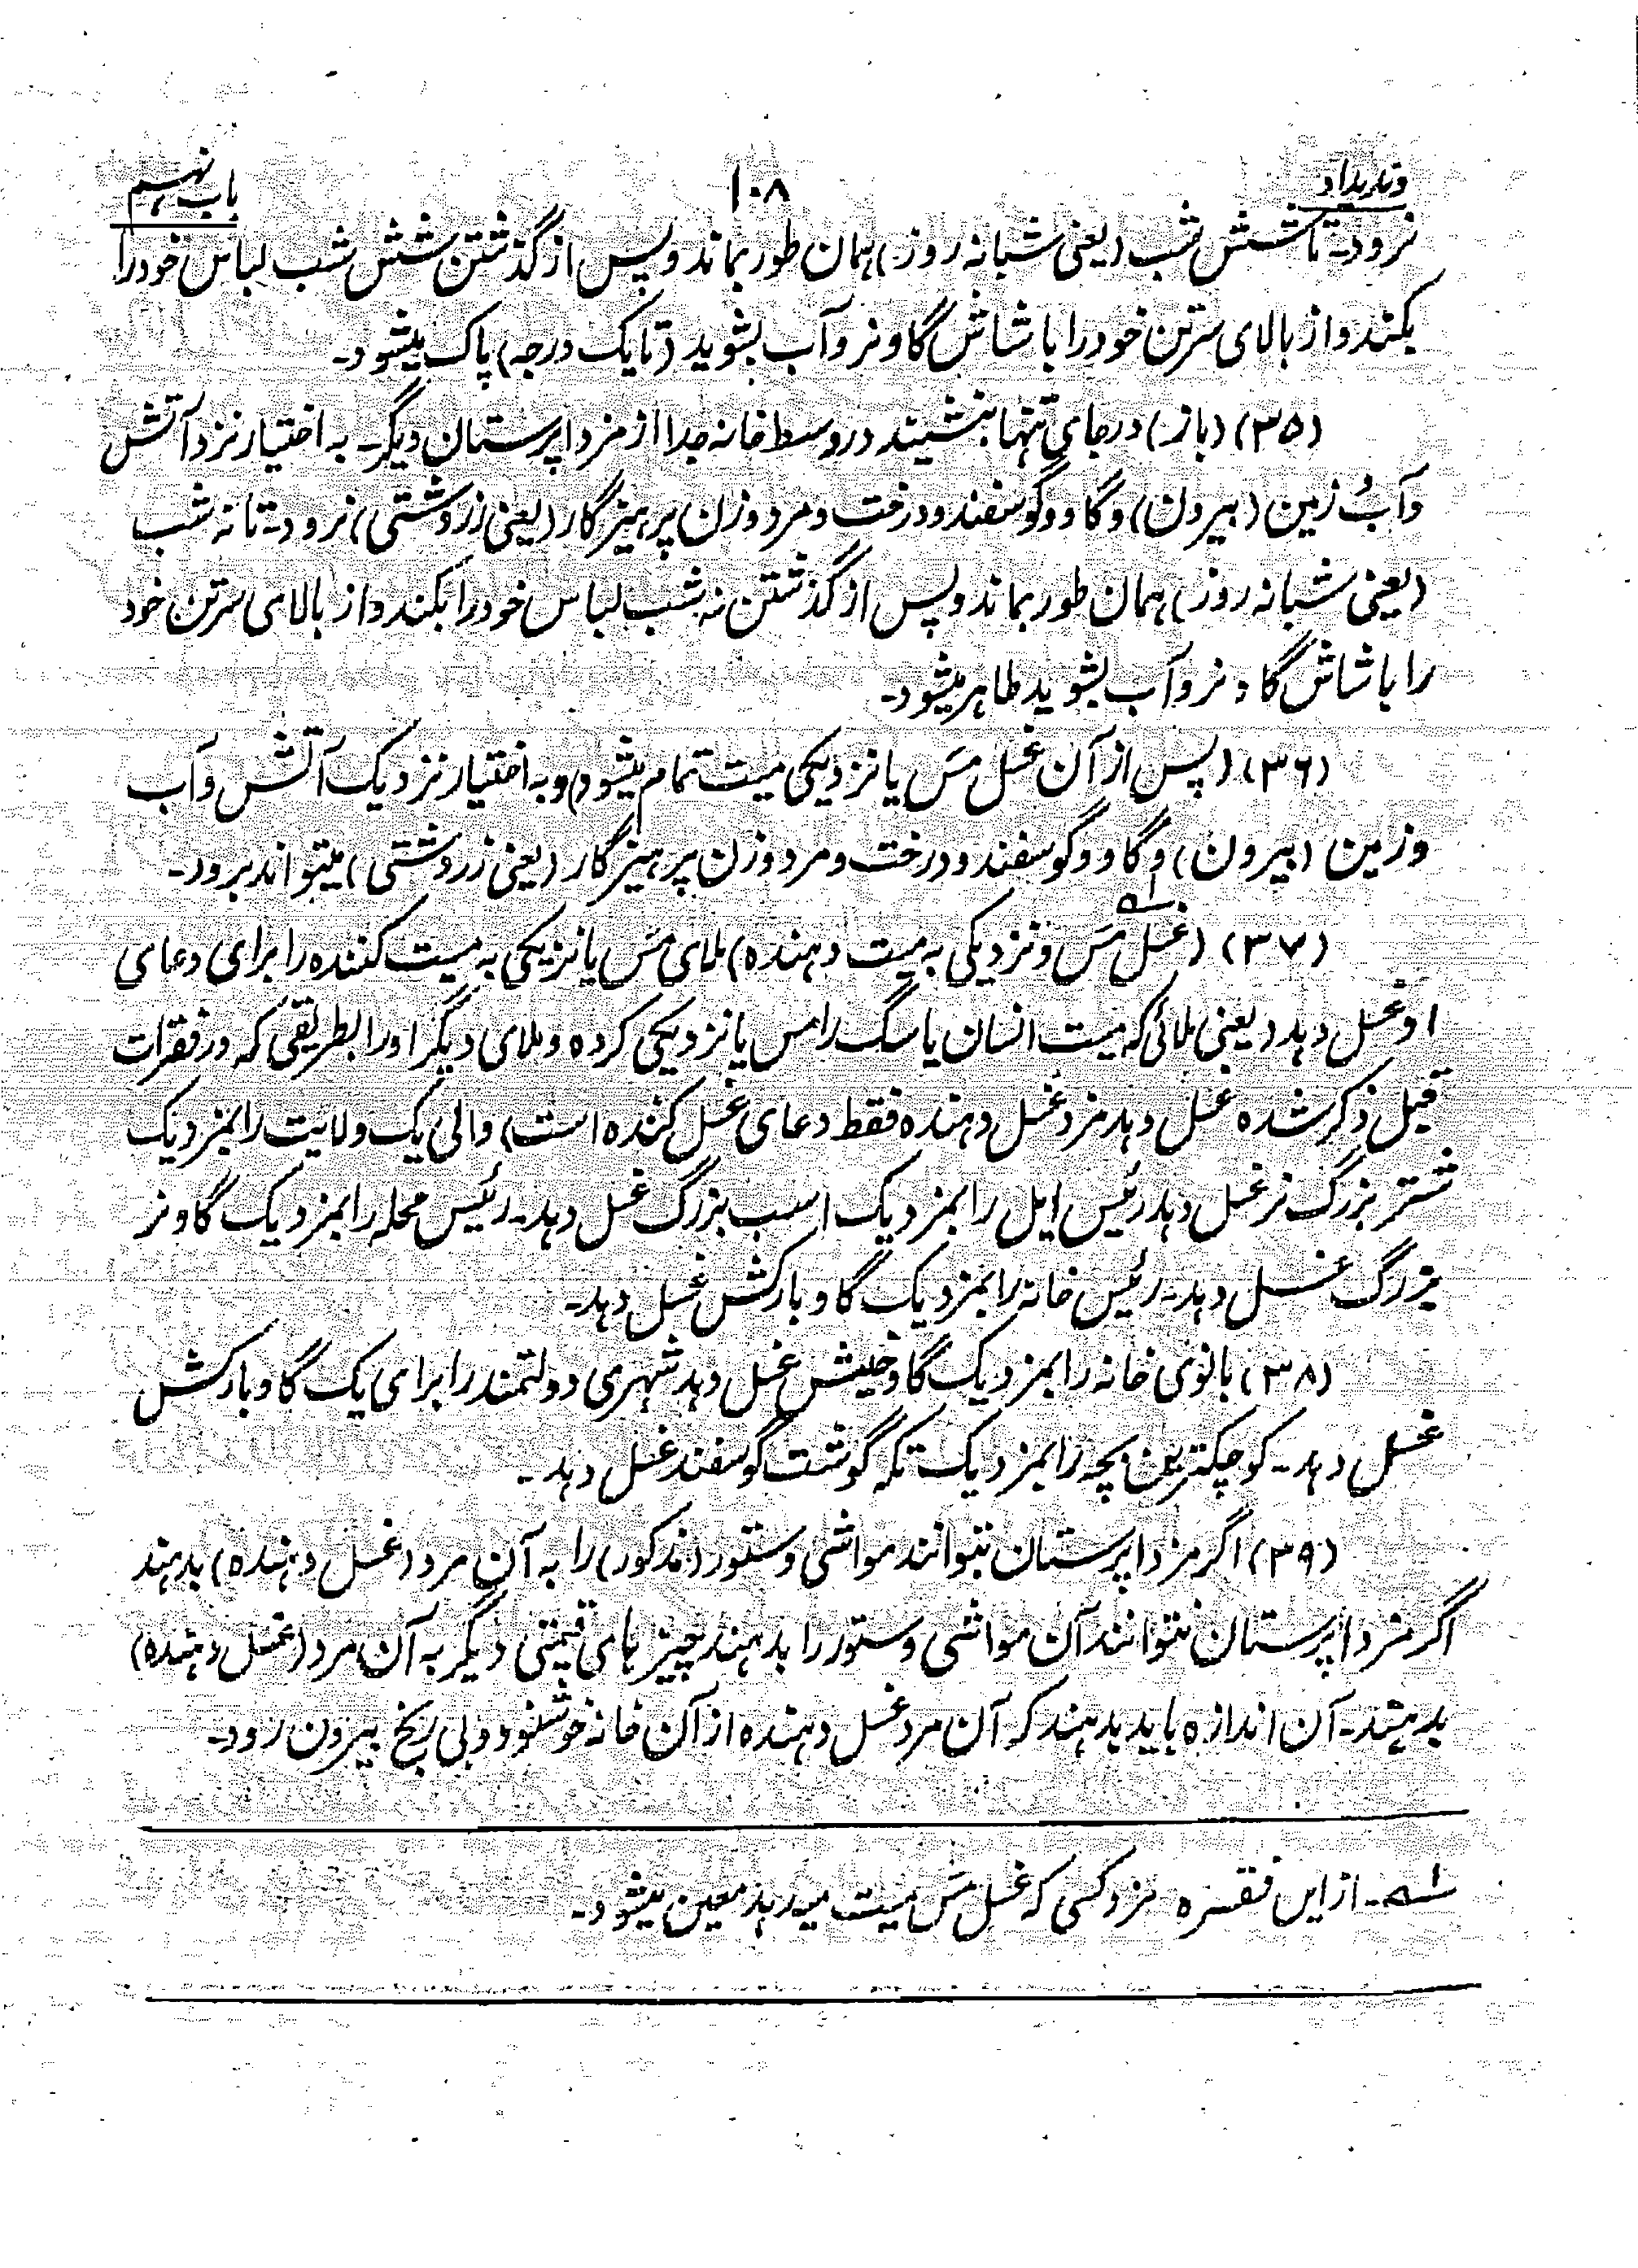 وندیداد
۱۰۸
باب نهم
نرود۔ تا شش شب (یعنی شبانه روز) همان طور بماند و پس از گذشتن شش شب لباس خود را
بکند و از بالای سر تن خود را با شاش گاو نر و آب بشوید (تا یک درجه) پاک میشود۔
(۳۵) (باز) در جای تنها بنشیند در وسط خانه جدا از مزداپرستان دیگر۔ به اختیار نزد آتش
و آب و زمین (بیرون) و گاو و گوسفند و درخت و مرد و زن پرهیزگار (یعنی زردشتی) نرود۔ تا نه شب
(یعنی شبانه روز) همان طور بماند و پس از گذشتن نه شب لباس خود را بکند و از بالای سر تن خود
را با شاش گاو نر و آب بشوید طاهر میشود۔
(۳۶) (پس از آن غسل مسّ یا نزدیکی میت تمام میشود) و به اختیار نزدیک آتش و آب
و زمین (بیرون) و گاو و گوسفند و درخت و مرد و زن پرهیزگار (یعنی زردشتی) میتواند برود۔
(۳۷) (غسل مسّ و نزدیکی به میت دهنده) ملای مسّ یا نزدیکی به میت کننده را برای دعای ۱ه
او غسل دهد (یعنی ملائی که میت انسان یا سگ را مس یا نزدیکی کرده و ملای دیگر او را بطریقی که در فقرات
قبل ذکر شده غسل دهد مزد غسل دهنده فقط دعای غسل کننده است) والی یک ولایت را بمزد یک
شتر بزرگ نر غسل دهد رئیس ایل را بمزد یک اسب بزرگ غسل دهد۔ رئیس محله را بمزد یک گاو نر
بزرگ غسل دهد۔ رئیس خانه را بمزد یک گاو بارکش غسل دهد۔
(۳۸) بانوی خانه را بمزد یک گاو خیش غسل دهد شهری دولتمند را برای یک گاو بارکش
غسل دهد۔ کوچکترین بچه را بمزد یک تکه گوشت گوسفند غسل دهد۔
(۳۹) اگر مزداپرستان بتوانند مواشی و ستور (مذکور) را به آن مرد (غسل دهنده) بدهند
اگر مزداپرستان نتوانند آن مواشی و ستور را بدهند چیز های قیمتی دیگر به آن مرد (غسل دهنده)
بدهند۔ آن اندازه باید بدهند که آن مرد غسل دهنده از آن خانه خوشنود و بی رنج بیرون رود۔
۱ه۔ از این فقره مزد کسی که غسل مسّ میت میدهد معین میشود۔